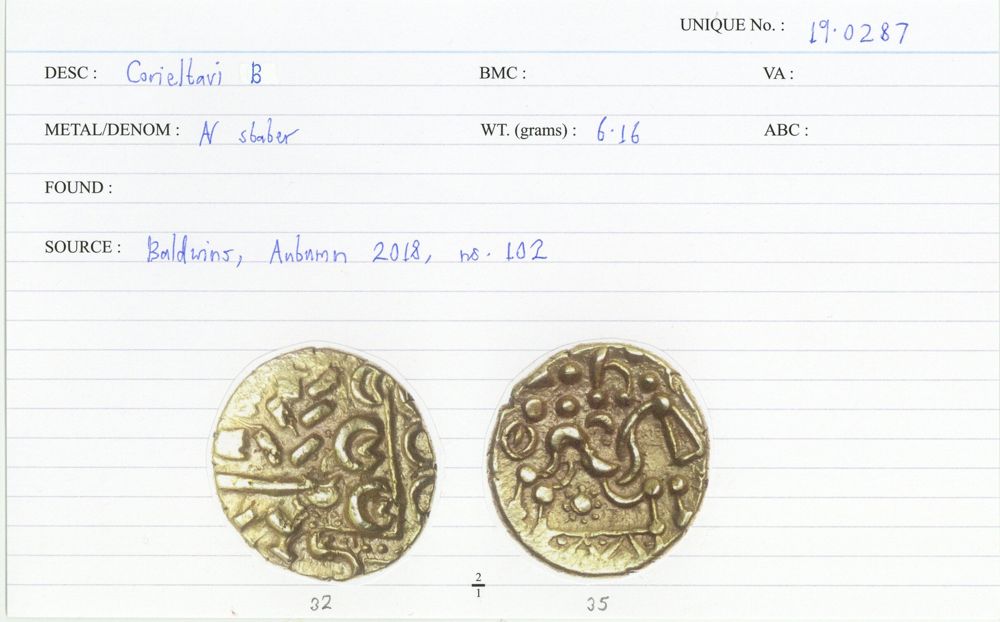 UNIQUE No. : 19.0287
DESC : Corieltavi B BMC : VA :
METAL/DENOM : N stater WT. (grams) : 6.16 ABC :
FOUND :
SOURCE : Baldwins, Autumn 2018, no. 102
2/1
32 35